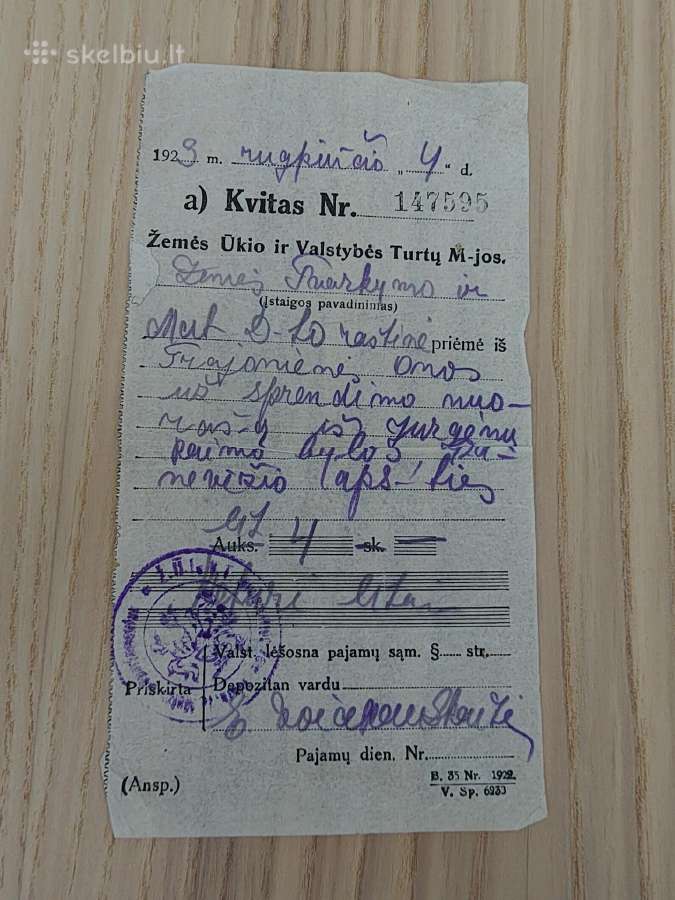 skelbiu.lt
1923 m. rugpiučio „4“ d.
a) Kvitas Nr. 147595
Žemės Ūkio ir Valstybės Turtų M-jos.
Žemės Tvarkymo ir
(Įstaigos pavadinimas)
Mat. D-to raštinė priėmė iš
Trajonienės Onos
už sprendimo nuo-
rašą iš Jurgėnų
kaimo bylos Pa-
nevėžio apskrities
Lit
Auks. 4 sk. —
keturi litai
Valst. lėšosna pajamų sąm. §. str.
Priskirta
Depozitan vardu
Pajamų dien. Nr.
(Ansp.)
B. 35 Nr. 1922.
V. Sp. 6233